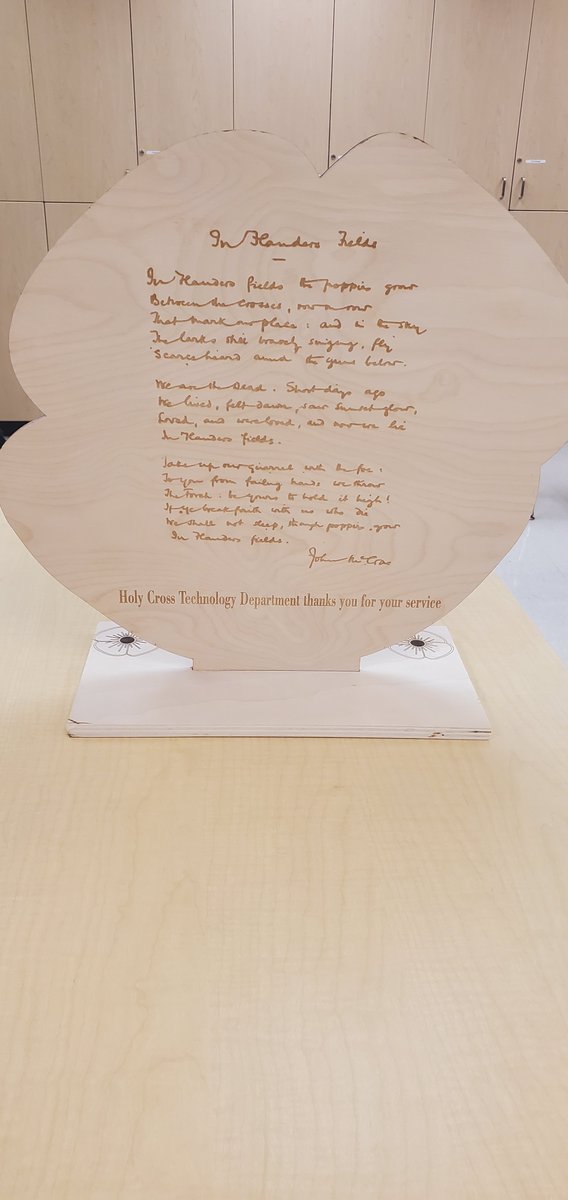 In Flanders Fields
—
In Flanders fields the poppies grow
Between the crosses, row on row
That mark our place : and in the sky
The larks still bravely singing, fly
Scarce heard amid the guns below.
We are the Dead. Short days ago
We lived, felt dawn, saw sunset glow,
Loved, and were loved, and now we lie
In Flanders fields.
Take up our quarrel with the foe :
To you from failing hands we throw
The Torch : be yours to hold it high!
If ye break faith with us who die
We shall not sleep, though poppies grow
In Flanders fields.
John McCrae
Holy Cross Technology Department thanks you for your service